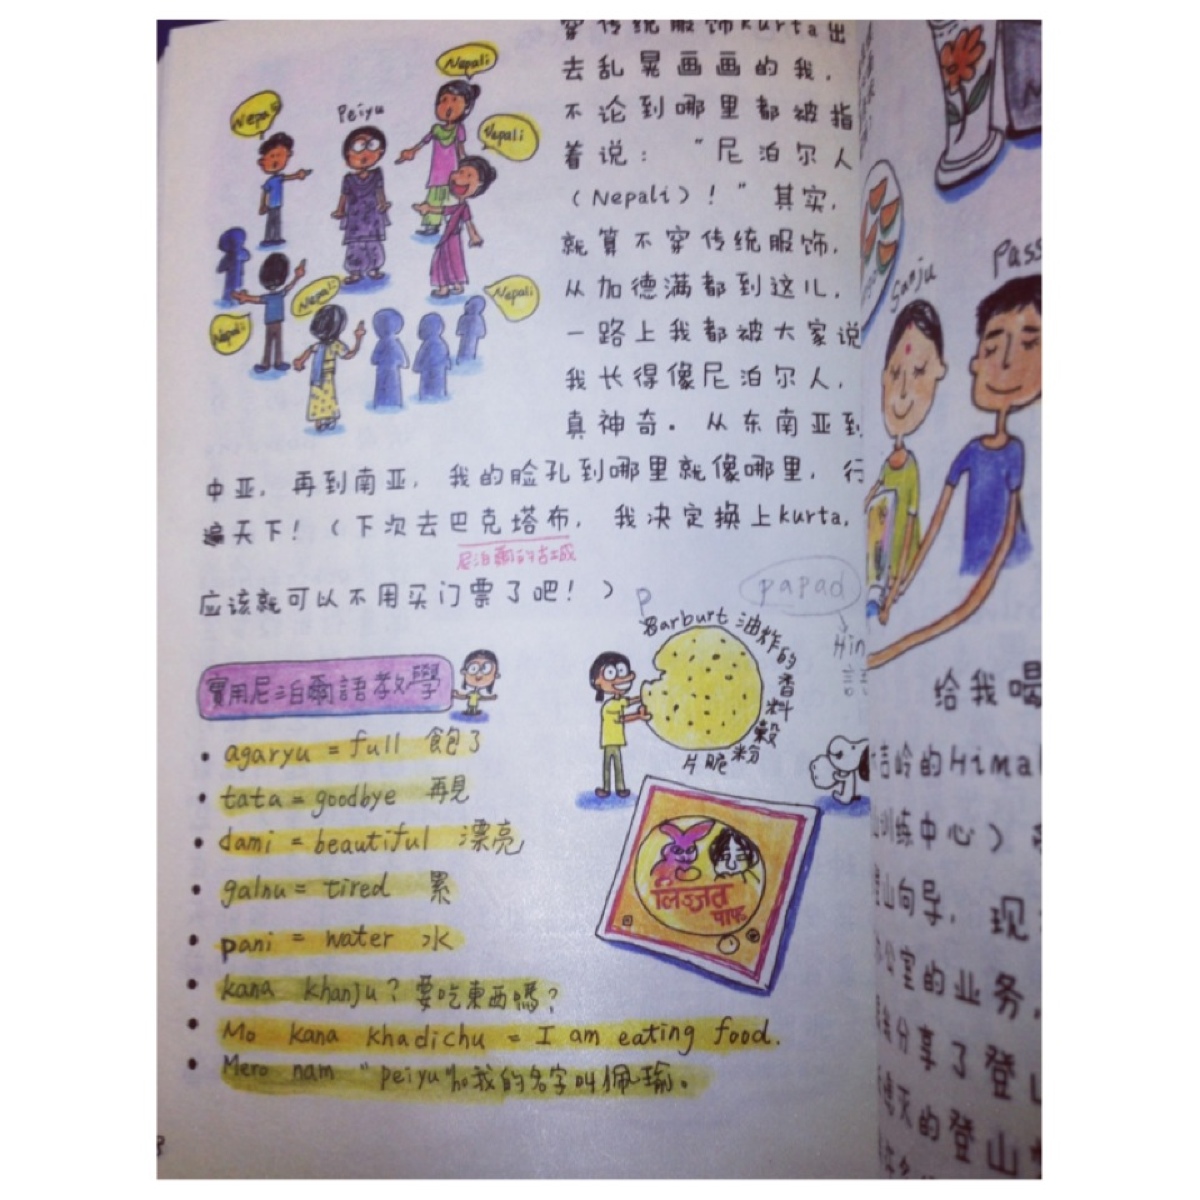 穿传统服饰kurta出
去乱晃画画的我，
不论到哪里都被指
着说："尼泊尔人
（Nepali）！"其实，
就算不穿传统服饰，
从加德满都到这儿，
一路上我都被大家说
我长得像尼泊尔人，
真神奇。从东南亚到
中亚，再到南亚，我的脸孔到哪里就像哪里，行
遍天下！（下次去巴克塔布，我决定换上kurta，
尼泊爾的古城
应该就可以不用买门票了吧！）
Nepali
Peiyu
Nepali
Nepali
Nepali
Nepali
Nepali
實用尼泊爾語教學
• agaryu = full 飽了
• tata = goodbye 再見
• dami = beautiful 漂亮
• galnu = tired 累
• pani = water 水
• kana khanju? 要吃東西嗎?
• Mo kana khadichu = I am eating food.
• Mero nam "peiyu" ho 我的名字叫佩瑜。
P
papad
Hin
語
Barburt 油炸的香料穀粉脆片
लिज्जत
पाप
Sanju
Pass
给我喝
吉岭的Himal
训练中心）
山向导，现
公室的业务，
分享了登
灭的登山